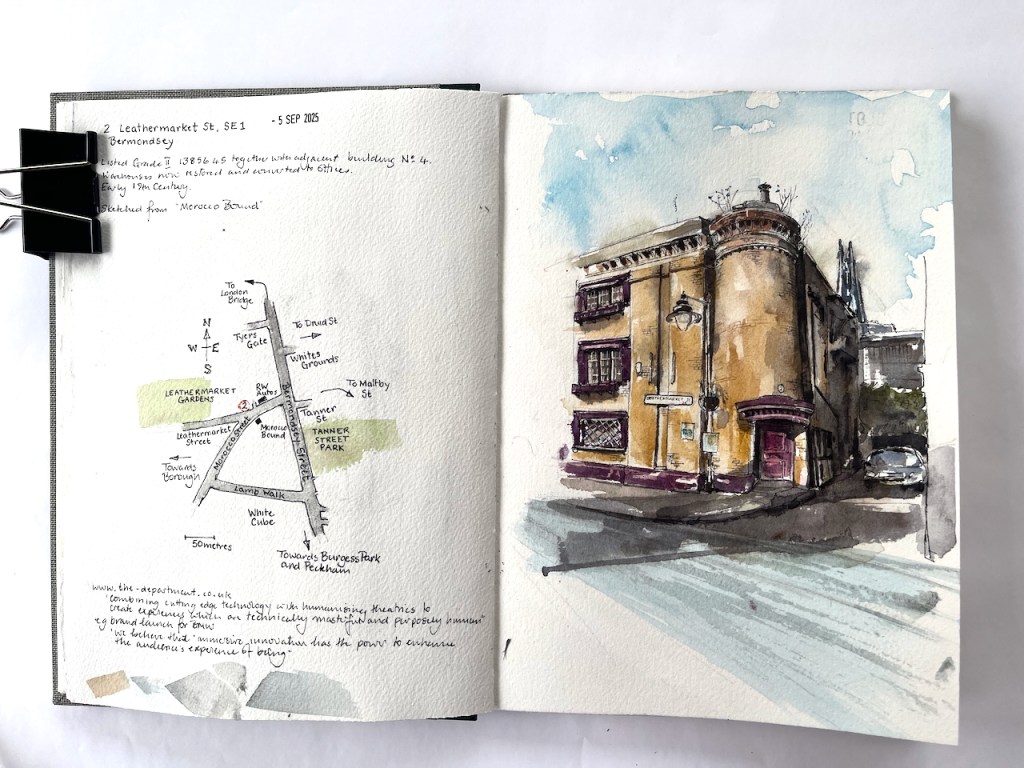 2 Leathermarket St, SE1
- 5 SEP 2025
Bermondsey
Listed Grade II 1385645 together with adjacent building No 4.
Warehouses now restored and converted to offices.
Early 19th Century.
Sketched from "Morocco Bound"
To
London
Bridge
N
W E
S
Tyers
Gate
To Druid St
Whites
Grounds
LEATHERMARKET
GARDENS
RW
Autos
2
To Maltby
St
Tanner
St
Leathermarket
Street
Morocco Street
Morocco
Bound
Bermondsey Street
TANNER
STREET
PARK
Towards
Borough
Lamb Walk
White
Cube
50 metres
Towards Burgess Park
and Peckham
www.the-department.co.uk
"Combining cutting edge technology with humanising theatrics to
create experiences which are technically masterful and purposely human"
eg brand launch for BMW
"We believe that immersive innovation has the power to enhance
the audience's experience of being"
LEATHERMARKET